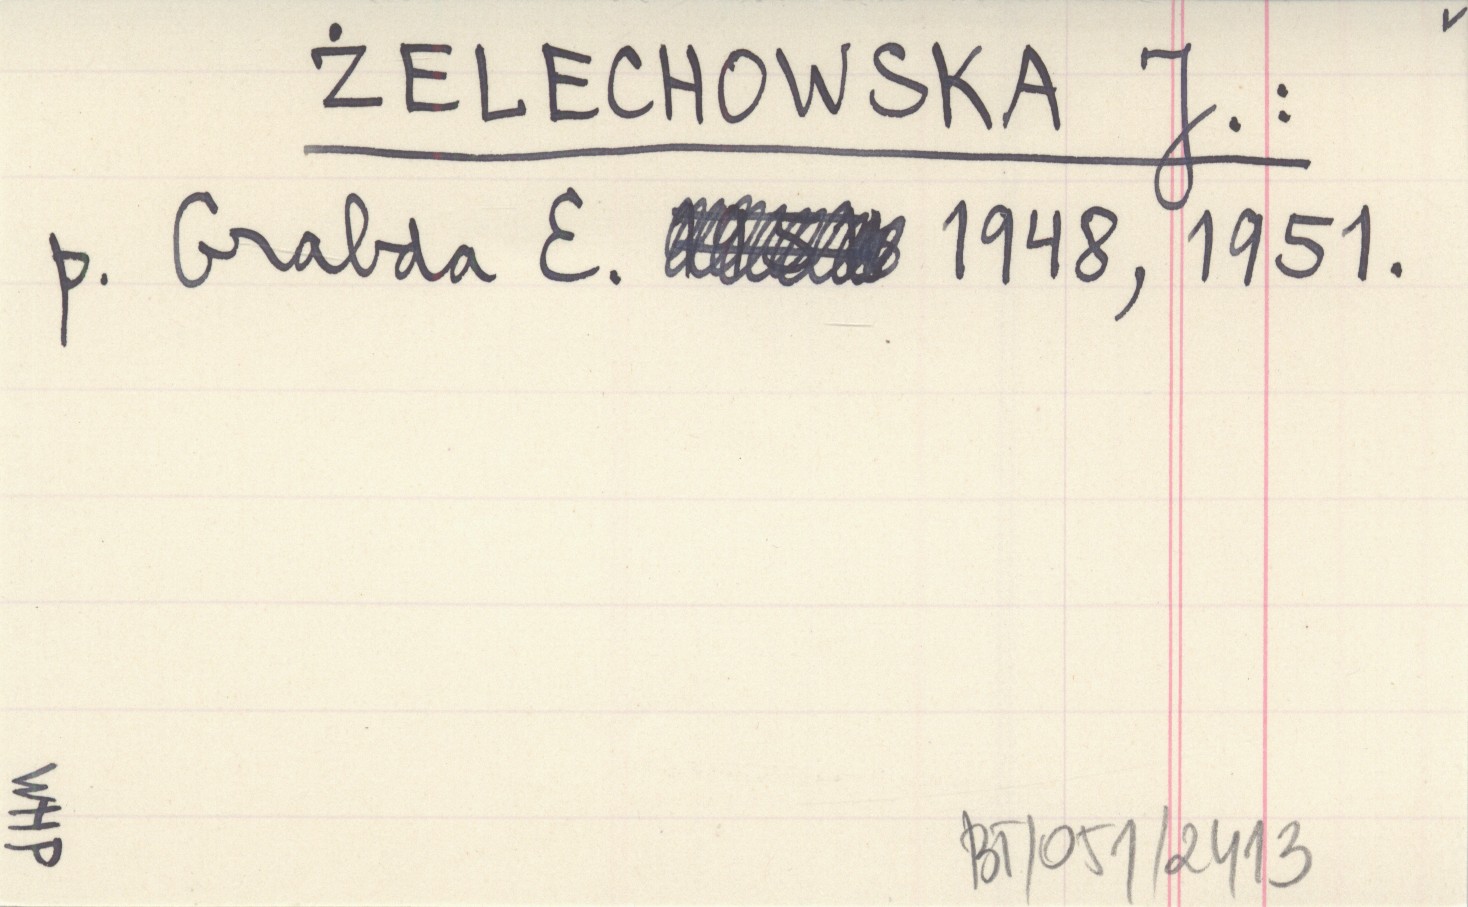 ŻELECHOWSKA J.:
p. Grabda E. 1948, 1951.
WHP
BT/051/2413